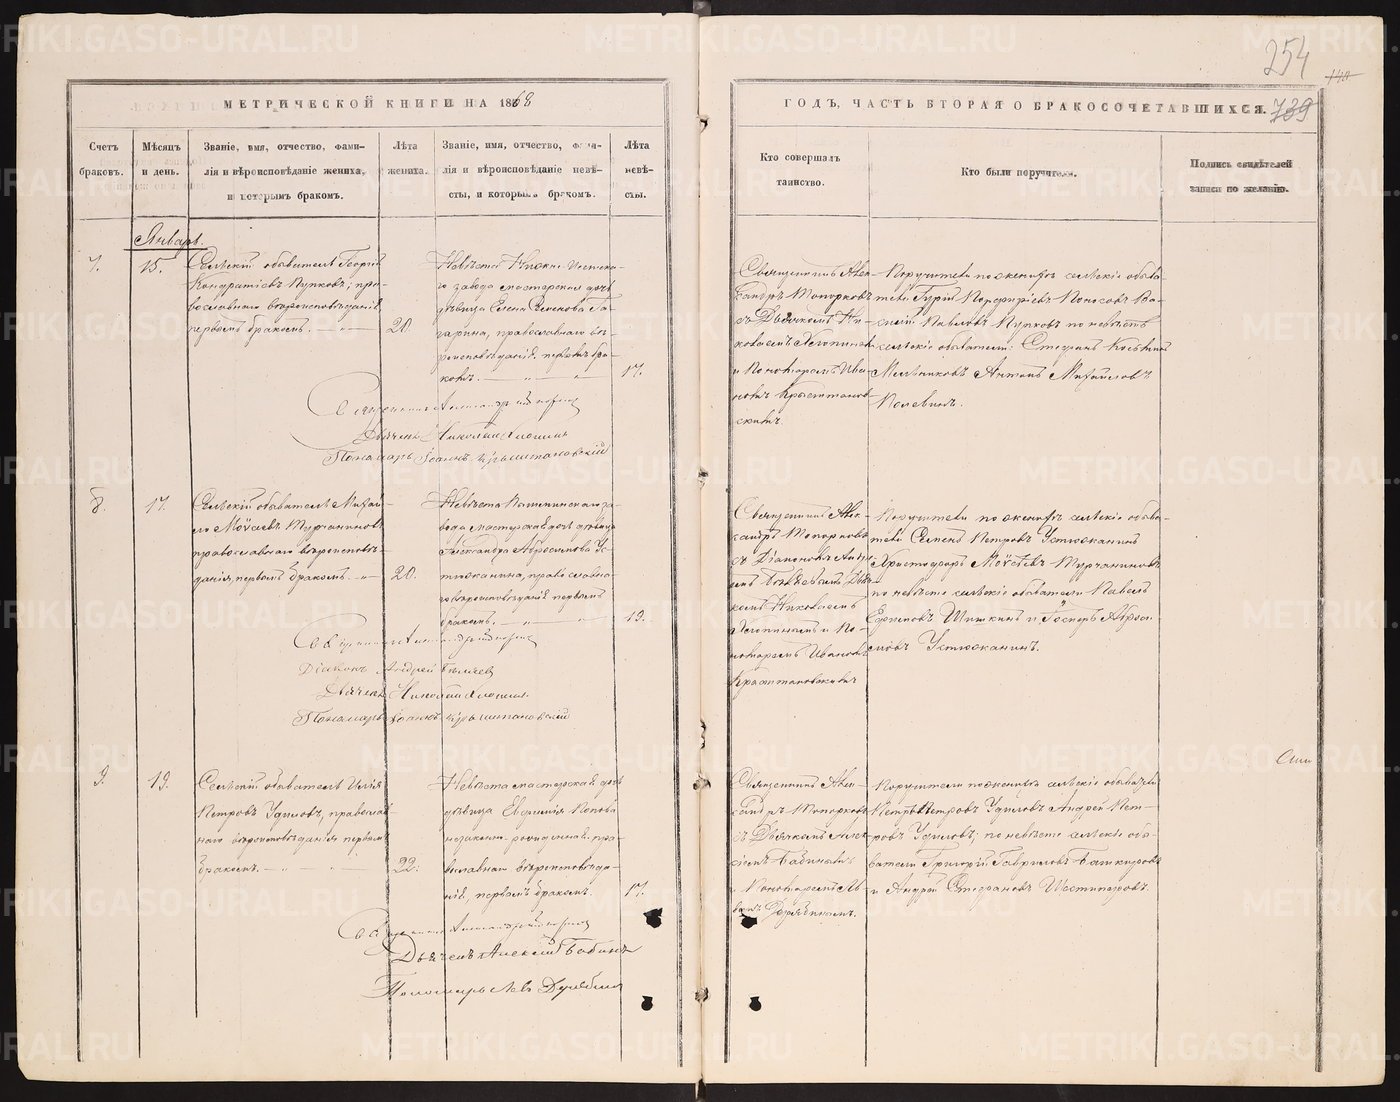 254
МЕТРИЧЕСКОЙ КНИГИ НА 1868
ГОДЪ, ЧАСТЬ ВТОРАЯ О БРАКОСОЧЕТАВШИХСЯ. 739
Счетъ браковъ.
Мѣсяцъ и день.
Званіе, имя, отчество, фами-
лія и вѣроисповѣданіе жениха,
и которымъ бракомъ.
Лѣта жениха.
Званіе, имя, отчество, фами-
лія и вѣроисповѣданіе невѣ-
сты, и которымъ бракомъ.
Лѣта невѣ-
сты.
Кто совершалъ
таинство.
Кто были поручители.
Подпись свидѣтелей
записи по желанію.
Январь.
7.
15.
Сельскій обыватель Георгій
Кондратіевъ Пупковъ, пра-
вославнаго вѣроисповѣданія
первымъ бракомъ.
20.
Невѣста Нижне-Исетска-
го завода мастерская дочь
дѣвица Елена Семенова Га-
гарина, православнаго вѣ-
роисповѣданія, первымъ бра-
комъ.
17.
Священникъ Алек-
сандръ Топорковъ
съ Дьячкомъ Ни-
колаемъ
и Пономаремъ Ива-
номъ Крыштанов-
скимъ.
Поручители по женихѣ сельскіе обыва-
тели Гурій Порфиріевъ Колосовъ Ва-
силій Павловъ Пупковъ по невѣстѣ
сельскіе обыватели: Стефанъ Козьминъ
Мельниковъ Антонъ Михайловъ
Полевинъ.
Священникъ Александръ Топорковъ
Дьячекъ Николай
Пономарь Іоаннъ Крыштановскій
8.
17.
Сельскій обыватель Михаи-
ло Моѵсеевъ Турчаниновъ
православнаго вѣроисповѣ-
данія, первымъ бракомъ.
20.
Невѣста Пышминскаго за-
вода мастерская дочь дѣвица
Александра Абросимова Ус-
тюжанина, православна-
го вѣроисповѣданія первымъ
бракомъ.
19.
Священникъ Алек-
сандръ Топорковъ
съ Діакономъ Андре-
емъ Дьяч-
комъ Николаемъ
и По-
номаремъ Иваномъ
Крыштановскимъ
Поручители по женихѣ сельскіе обыва-
тели Семенъ Петровъ Устюжанинъ
Христофоръ Моѵсеевъ Турчаниновъ
по невѣстѣ сельскіе обыватели Павелъ
Ефимовъ Шишкинъ и Абро-
симовъ Устюжанинъ.
Священникъ Александръ Топорковъ
Діаконъ Андрей
Дьячекъ Николай
Пономарь Іоаннъ Крыштановскій
9.
19.
Сельскій обыватель Илія
Петровъ Удиловъ, православ-
наго вѣроисповѣданія первымъ
бракомъ.
22.
Невѣста мастерская дочь
дѣвица Евфимія
православнаго вѣроисповѣда-
нія, первымъ бракомъ.
17.
Священникъ Алек-
сандръ Топорковъ
съ Дьячкомъ Алек-
сіемъ Бабинымъ
и Пономаремъ Ль-
вомъ
Поручители по женихѣ сельскіе обыватели
Петръ Петровъ Удиловъ Андрей Пет-
ровъ Удиловъ; по невѣстѣ сельскіе обы-
ватели Григорій Гавриловъ Башкировъ
и Андрей Стефановъ Шестипоровъ.
Священникъ Александръ Топорковъ
Дьячекъ Алексій Бабинъ
Пономарь Левъ
METRIKI.GASO-URAL.RU